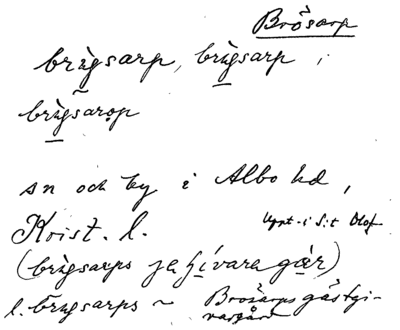 Brösarp
brìgsarp, brìgsarp i
brìgsarop
sn och by i Albo hd,
Krist. l. Uppt. i S:t Olof
(brìgsarps jahívara gàr)
l. brigsarps ~ Brösarps gästgi-
varegård